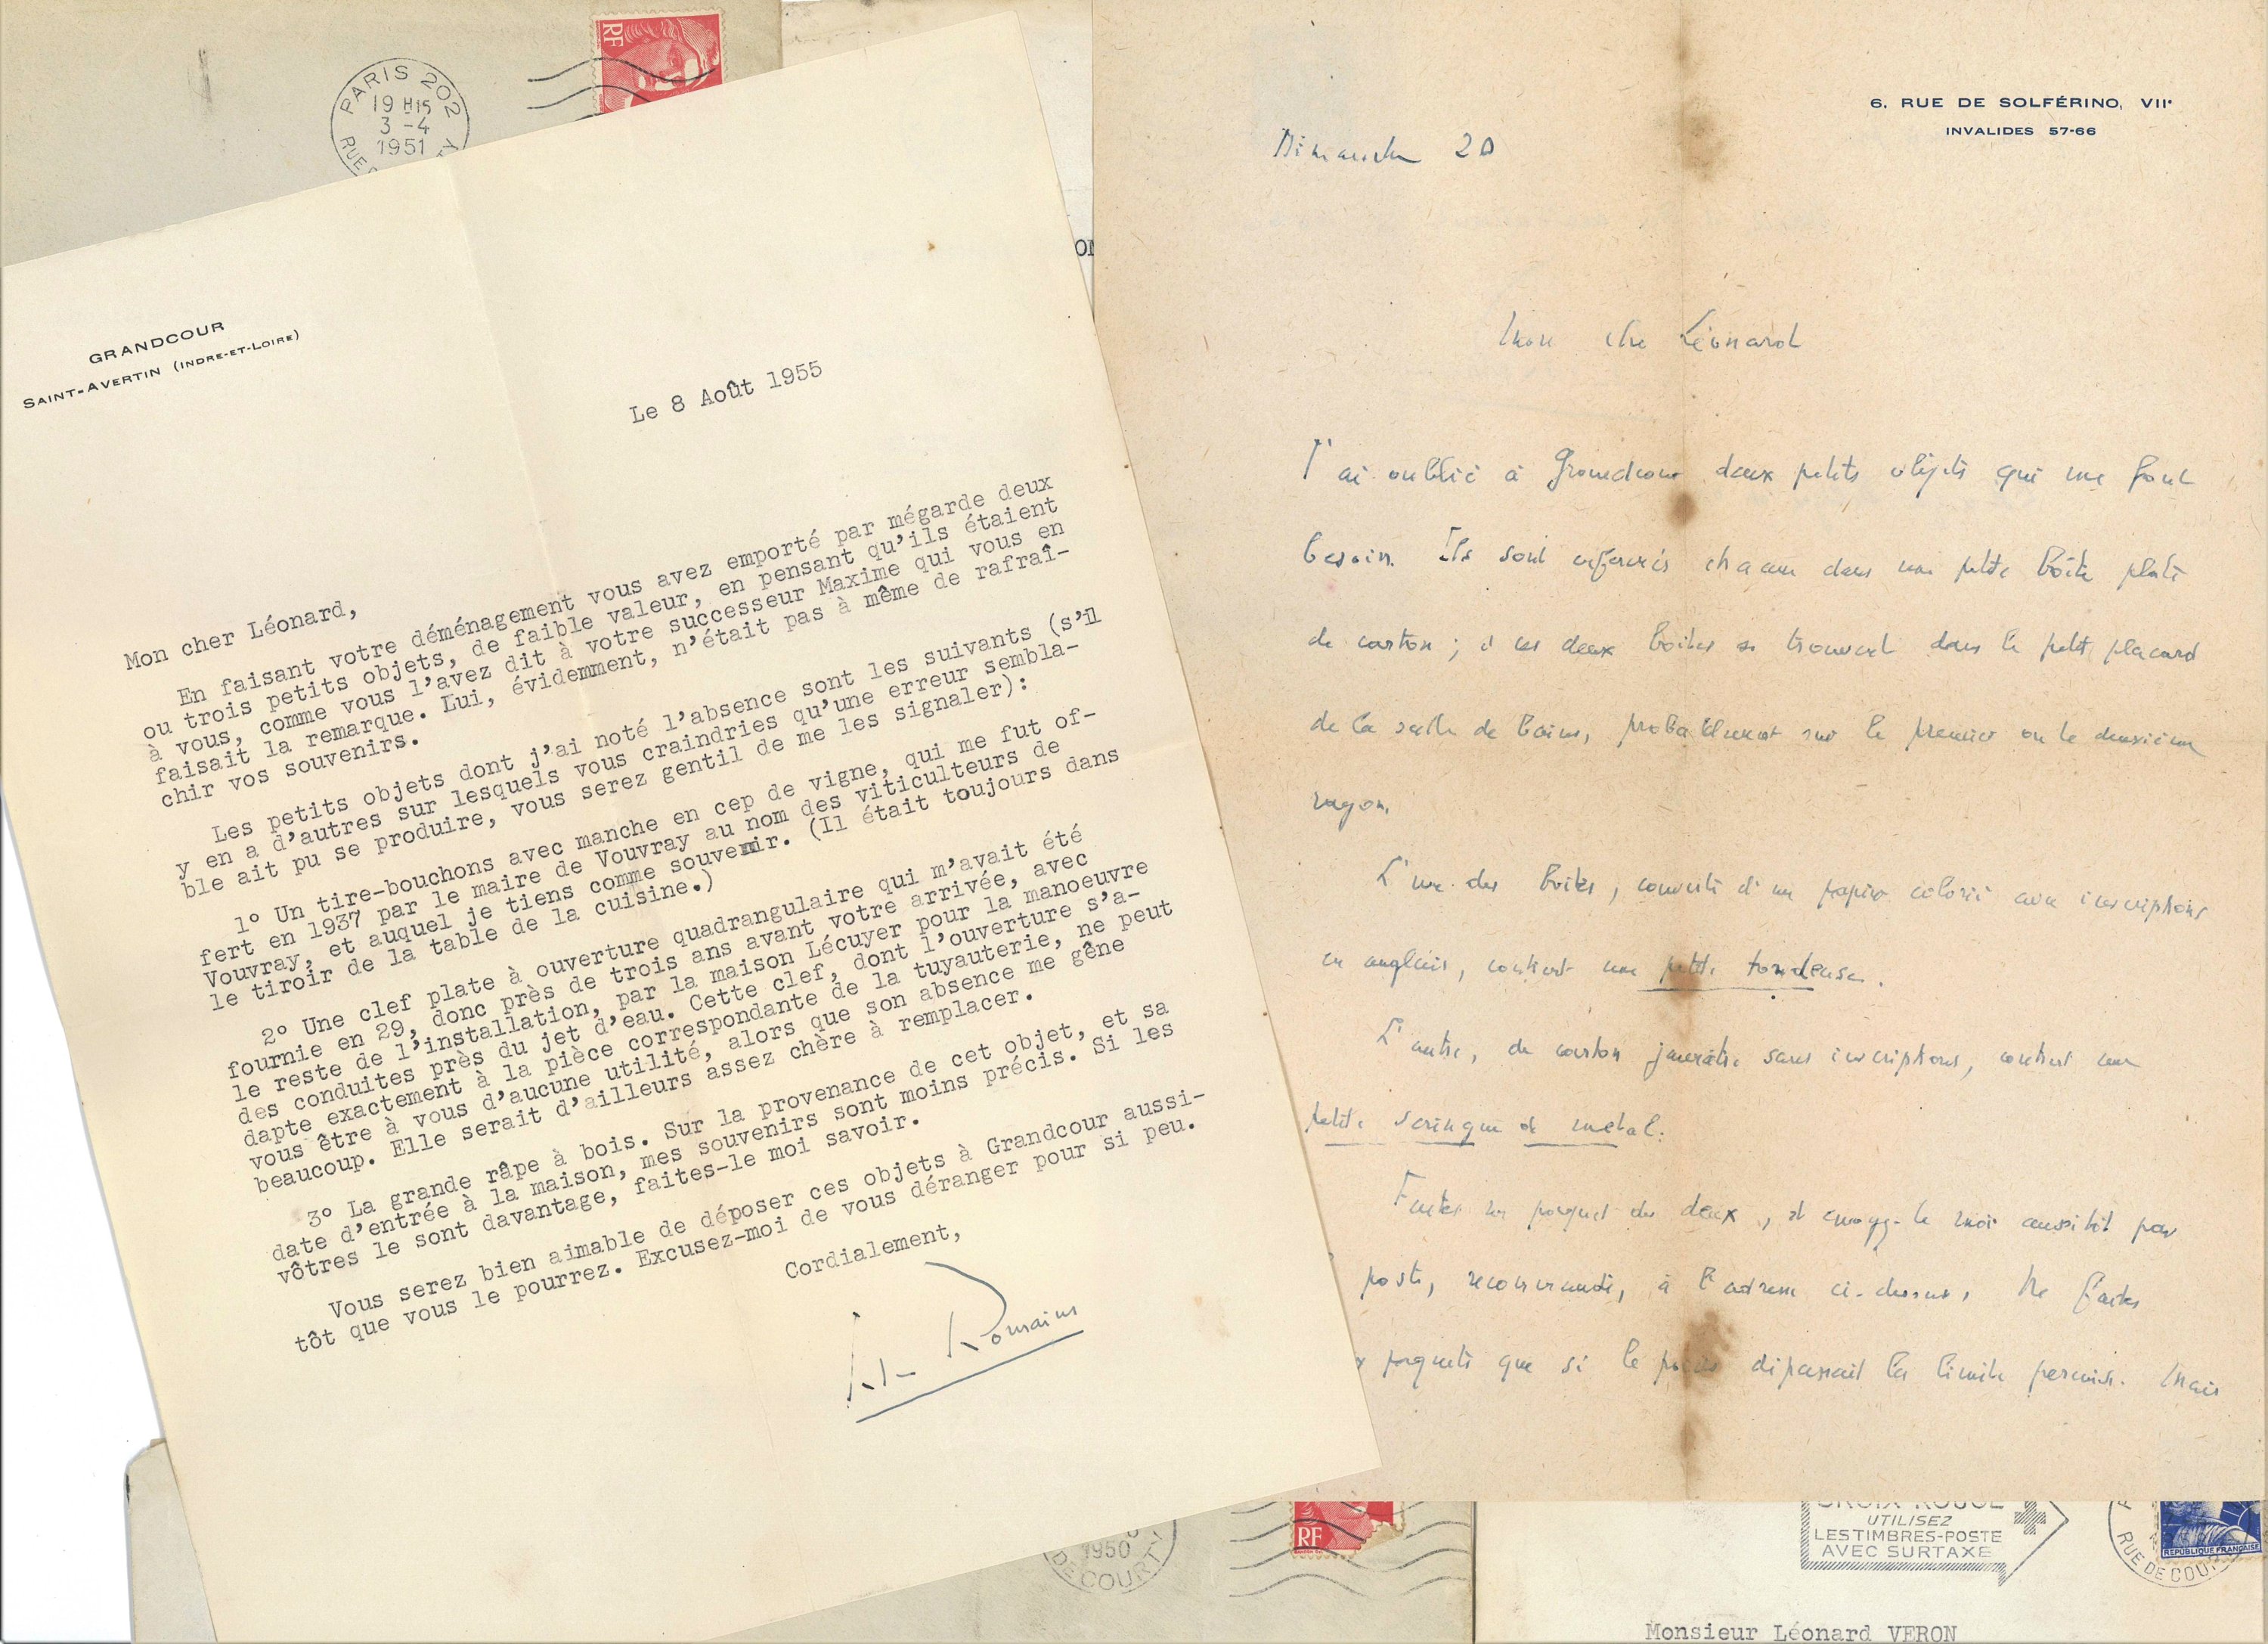 PARIS 202
19 H15
3 -4
1951
RUE
RF
GRANDCOUR
SAINT-AVERTIN (INDRE-ET-LOIRE)
Le 8 Août 1955
Mon cher Léonard,
En faisant votre déménagement vous avez emporté par mégarde deux
ou trois petits objets, de faible valeur, en pensant qu'ils étaient
à vous, comme vous l'avez dit à votre successeur Maxime qui vous en
faisait la remarque. Lui, évidemment, n'était pas à même de rafraî-
chir vos souvenirs.
Les petits objets dont j'ai noté l'absence sont les suivants (s'il
y en a d'autres sur lesquels vous craindries qu'une erreur sembla-
ble ait pu se produire, vous serez gentil de me les signaler):
1° Un tire-bouchons avec manche en cep de vigne, qui me fut of-
fert en 1937 par le maire de Vouvray au nom des viticulteurs de
Vouvray, et auquel je tiens comme souvenir. (Il était toujours dans
le tiroir de la table de la cuisine.)
2° Une clef plate à ouverture quadrangulaire qui m'avait été
fournie en 29, donc près de trois ans avant votre arrivée, avec
le reste de l'installation, par la maison Lécuyer pour la manoeuvre
des conduites près du jet d'eau. Cette clef, dont l'ouverture s'a-
dapte exactement à la pièce correspondante de la tuyauterie, ne peut
vous être à vous d'aucune utilité, alors que son absence me gêne
beaucoup. Elle serait d'ailleurs assez chère à remplacer.
3° La grande râpe à bois. Sur la provenance de cet objet, et sa
date d'entrée à la maison, mes souvenirs sont moins précis. Si les
vôtres le sont davantage, faites-le moi savoir.
Vous serez bien aimable de déposer ces objets à Grandcour aussi-
tôt que vous le pourrez. Excusez-moi de vous déranger pour si peu.
Cordialement,
Romains
6. RUE DE SOLFÉRINO, VIIe
INVALIDES 57-66
Dimanche 20
Mon cher Léonard
J'ai oublié à Grandcour deux petits objets qui me font
besoin. Ils sont enfermés chacun dans une petite boîte plate
de carton ; et ces deux boîtes se trouvent dans le petit placard
de la salle de bains, probablement sur le premier ou le deuxième
rayon.
L'une des boîtes, couverte d'un papier colorié avec inscriptions
en anglais, contient une petite tondeuse.
L'autre, de carton jaunâtre sans inscriptions, contient une
petite seringue de métal.
Faites un paquet des deux, et envoyez-le moi aussitôt par
poste, recommandé, à l'adresse ci-dessus. Ne faites
paquets que si le poids dépassait la limite permise. Mais
1950
DE COURTY
RF
CROIX ROUGE
UTILISEZ
LES TIMBRES-POSTE
AVEC SURTAXE
RUE DE COU
REPUBLIQUE FRANÇAISE
Monsieur Léonard VERON